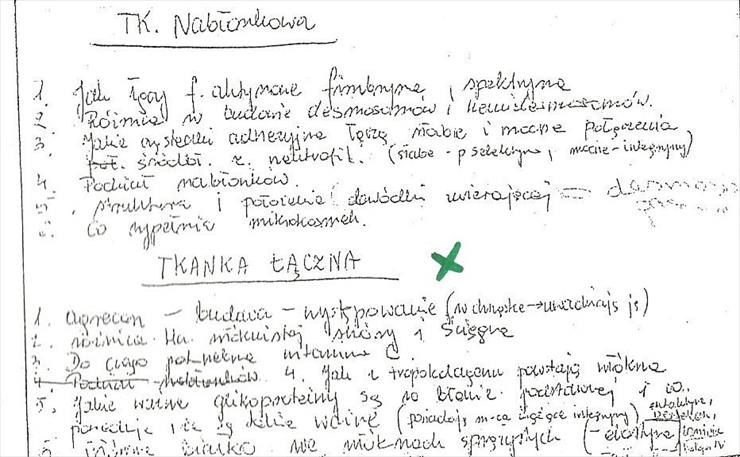 TK. Nabłonkowa
1. Jak łączy f. aktynowe fimbryna, spektryna
2. Różnice w budowie desmosomów i hemidesmosomów.
3. Jakie cząsteczki adhezyjne łączą słabe i mocne połączenia
śródbł. z. neutrofil. (słabe - p selektyna, mocne - integryny)
4. Podział nabłonków.
5. struktura i położenie obwódki zwierającej -
6. Co wypełnia mikrokosmek.
TKANKA ŁĄCZNA
1. agrecan - budowa - występowanie (w chrząstce → uwadniają ją)
2. różnica tk. włóknistej skóry i ścięgna
3. Do czego potrzebna witamina C.
4. Podział nabłonków 4. Jak z tropokolagenu powstają włókna
5. Jakie ważne glikoproteiny są w błonie podstawnej i co
powoduje że są takie ważne (posiadają m-ca wiążące integryny)
białko we włóknach sprężystych (- elastyna